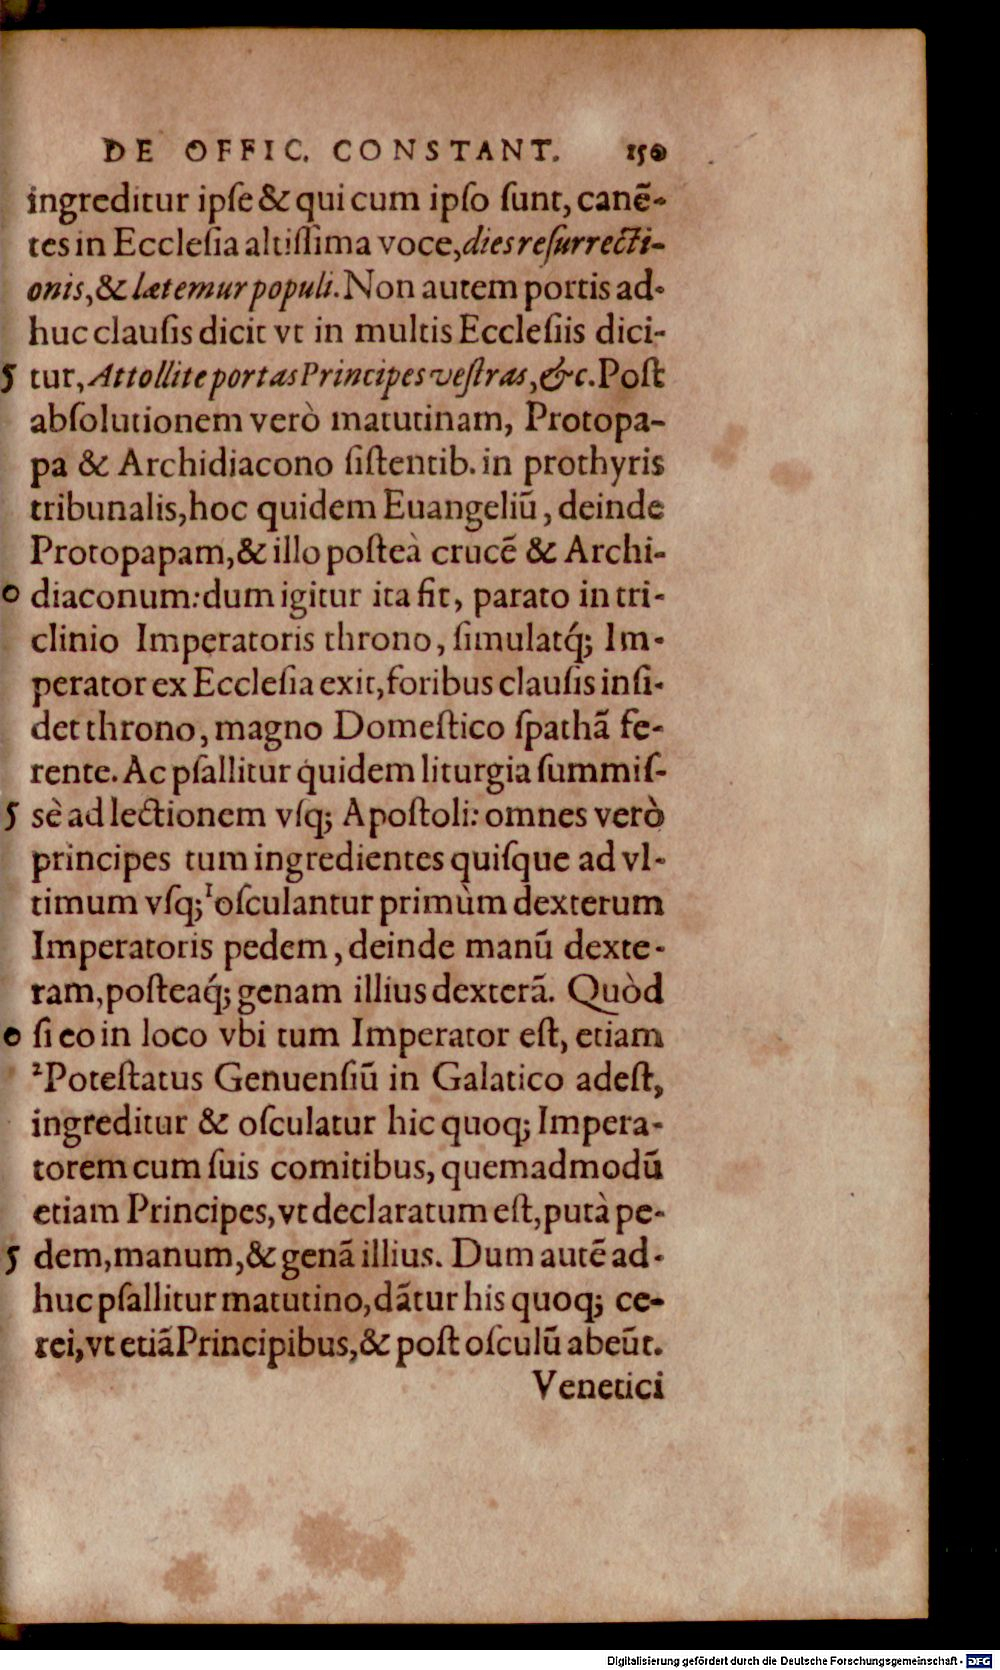 DE OFFIC. CONSTANT. 150
ingreditur ipſe & qui cum ipſo ſunt, canē-
tes in Eccleſia altiſſima voce, dies reſurrecti-
onis, & lætemur populi. Non autem portis ad-
huc clauſis dicit vt in multis Eccleſiis dici-
5 tur, Attollite portas Principes veſtras, &c. Poſt
abſolutionem verò matutinam, Protopa-
pa & Archidiacono ſiſtentib. in prothyris
tribunalis, hoc quidem Euangeliū, deinde
Protopapam, & illo poſteà crucē & Archi-
0 diaconum: dum igitur ita fit, parato in tri-
clinio Imperatoris throno, ſimulatq́; Im-
perator ex Eccleſia exit, foribus clauſis inſi-
det throno, magno Domeſtico ſpathā fe-
rente. Ac pſallitur quidem liturgia ſummiſ-
5 sè ad lectionem vſq; Apoſtoli: omnes verò
principes tum ingredientes quiſque ad vl-
timum vſq; ¹oſculantur primùm dexterum
Imperatoris pedem, deinde manū dexte-
ram, poſteaq́; genam illius dexterā. Quòd
0 ſi eo in loco vbi tum Imperator eſt, etiam
²Poteſtatus Genuenſiū in Galatico adeſt,
ingreditur & oſculatur hic quoq; Impera-
torem cum ſuis comitibus, quemadmodū
etiam Principes, vt declaratum eſt, putà pe-
5 dem, manum, & genā illius. Dum autē ad-
huc pſallitur matutino, dātur his quoq; ce-
rei, vt etiā Principibus, & poſt oſculū abeūt.
Venetici
Digitalisierung gefördert durch die Deutsche Forschungsgemeinschaft - DFG